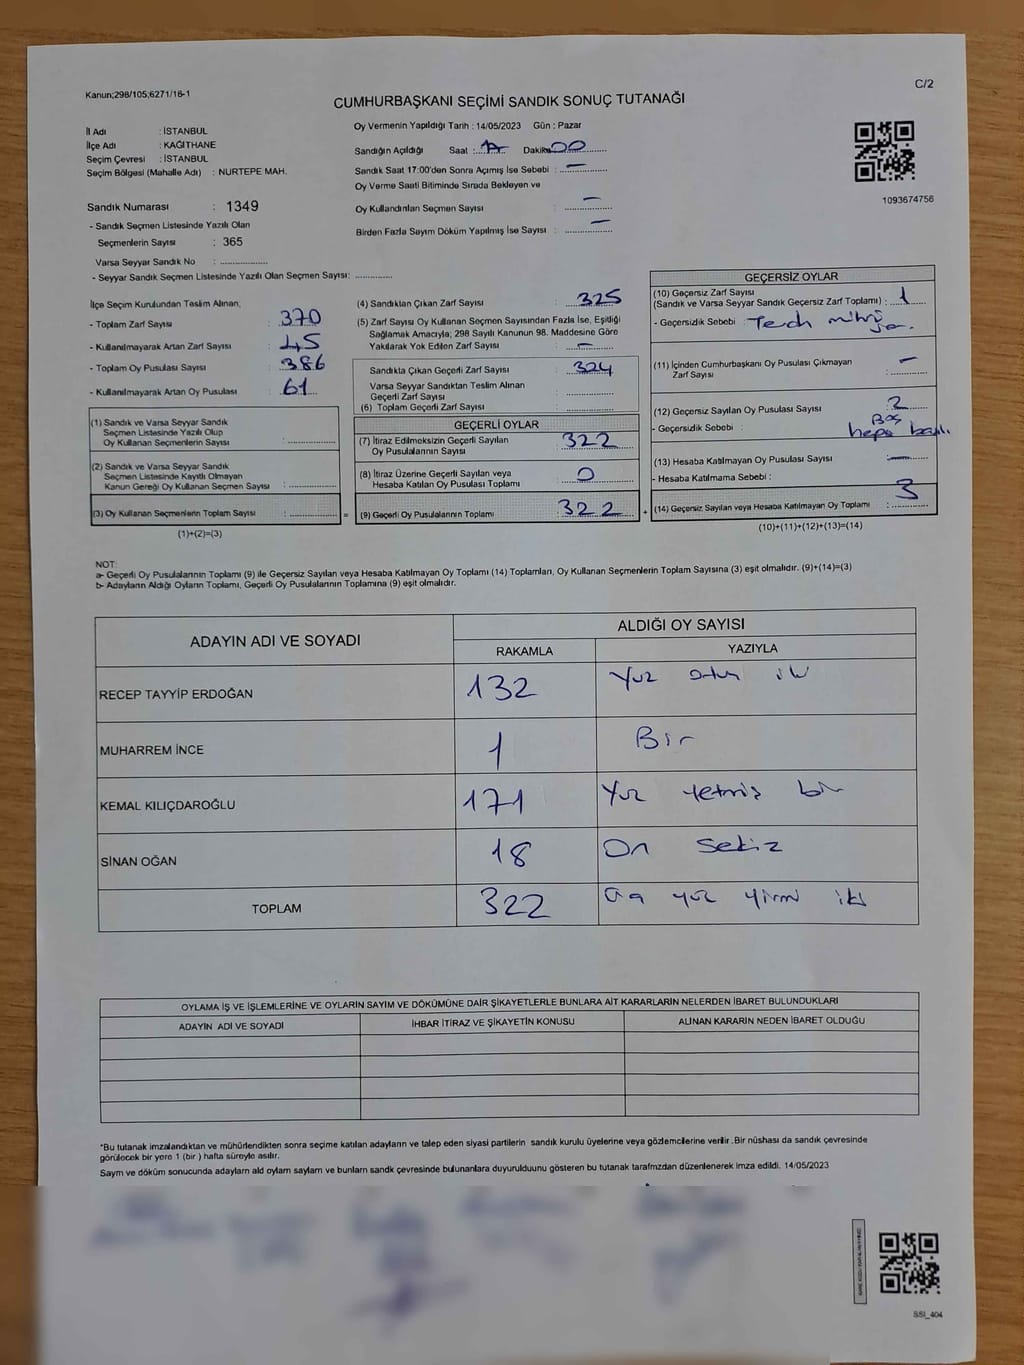 Kanun;298/105,6271/16-1
C/2
CUMHURBAŞKANI SEÇİMİ SANDIK SONUÇ TUTANAĞI
İl Adı : İSTANBUL
İlçe Adı : KAĞITHANE
Seçim Çevresi : İSTANBUL
Seçim Bölgesi (Mahalle Adı) : NURTEPE MAH.
Sandık Numarası : 1349
- Sandık Seçmen Listesinde Yazılı Olan
Seçmenlerin Sayısı : 365
Varsa Seyyar Sandık No : ..............
- Seyyar Sandık Seçmen Listesinde Yazılı Olan Seçmen Sayısı: ............
Oy Vermenin Yapıldığı Tarih : 14/05/2023 Gün : Pazar
Sandığın Açıldığı Saat : Dakika 00
Sandık Saat 17:00'den Sonra Açımış İse Sebebi : —
Oy Verme Saati Bitiminde Sırada Bekleyen ve
Oy Kullandırılan Seçmen Sayısı : —
Birden Fazla Sayım Döküm Yapılmış İse Sayısı : —
1093674756
İlçe Seçim Kurulundan Teslim Alınan;
- Toplam Zarf Sayısı : 370
- Kullanılmayarak Artan Zarf Sayısı : 45
- Toplam Oy Pusulası Sayısı : 386
- Kullanılmayarak Artan Oy Pusulası : 61
(1) Sandık ve Varsa Seyyar Sandık
Seçmen Listesinde Yazılı Olup
Oy Kullanan Seçmenlerin Sayısı : ..............
(2) Sandık ve Varsa Seyyar Sandık
Seçmen Listesinde Kayıtlı Olmayan
Kanun Gereği Oy Kullanan Seçmen Sayısı : ..............
(3) Oy Kullanan Seçmenlerin Toplam Sayısı : .............. =
(1)+(2)=(3)
(4) Sandıktan Çıkan Zarf Sayısı : 325
(5) Zarf Sayısı Oy Kullanan Seçmen Sayısından Fazla İse, Eşitliği
Sağlamak Amacıyla; 298 Sayılı Kanunun 98. Maddesine Göre
Yakılarak Yok Edilen Zarf Sayısı : —
Sandıkta Çıkan Geçerli Zarf Sayısı : 324
Varsa Seyyar Sandıktan Teslim Alınan
Geçerli Zarf Sayısı : ..............
(6) Toplam Geçerli Zarf Sayısı : ..............
GEÇERLİ OYLAR
(7) İtiraz Edilmeksizin Geçerli Sayılan : 322
Oy Pusulalarının Sayısı
(8) İtiraz Üzerine Geçerli Sayılan veya : 0
Hesaba Katılan Oy Pusulası Toplamı
(9) Geçerli Oy Pusulalarının Toplamı : 322 +
GEÇERSİZ OYLAR
(10) Geçersiz Zarf Sayısı
(Sandık ve Varsa Seyyar Sandık Geçersiz Zarf Toplamı) : 1
- Geçersizlik Sebebi :
(11) İçinden Cumhurbaşkanı Oy Pusulası Çıkmayan
Zarf Sayısı : —
(12) Geçersiz Sayılan Oy Pusulası Sayısı : 2
- Geçersizlik Sebebi : Boş
(13) Hesaba Katılmayan Oy Pusulası Sayısı : —
- Hesaba Katılmama Sebebi :
(14) Geçersiz Sayılan veya Hesaba Katılmayan Oy Toplamı : 3
(10)+(11)+(12)+(13)=(14)
NOT:
a- Geçerli Oy Pusulalarının Toplamı (9) ile Geçersiz Sayılan veya Hesaba Katılmayan Oy Toplamı (14) Toplamları, Oy Kullanan Seçmenlerin Toplam Sayısına (3) eşit olmalıdır. (9)+(14)=(3)
b- Adayların Aldığı Oyların Toplamı, Geçerli Oy Pusulalarının Toplamına (9) eşit olmalıdır.
ADAYIN ADI VE SOYADI
ALDIĞI OY SAYISI
RAKAMLA YAZIYLA
RECEP TAYYİP ERDOĞAN 132 Yüz otuz iki
MUHARREM İNCE 1 Bir
KEMAL KILIÇDAROĞLU 171 Yüz Yetmiş bir
SİNAN OĞAN 18 On Sekiz
TOPLAM 322 Üç yüz yirmi iki
OYLAMA İŞ VE İŞLEMLERİNE VE OYLARIN SAYIM VE DÖKÜMÜNE DAİR ŞİKAYETLERLE BUNLARA AİT KARARLARIN NELERDEN İBARET BULUNDUKLARI
ADAYIN ADI VE SOYADI İHBAR İTİRAZ VE ŞİKAYETİN KONUSU ALINAN KARARIN NEDEN İBARET OLDUĞU
*Bu tutanak imzalandıktan ve mühürlendikten sonra seçime katılan adayların ve talep eden siyasi partilerin sandık kurulu üyelerine veya gözlemcilerine verilir .Bir nüshası da sandık çevresinde
görülecek bir yere 1 (bir ) hafta süreyle asılır.
Sayım ve döküm sonucunda adayların ald oyların sayları ve bunların sandk çevresinde bulunanlara duyurulduunu gösteren bu tutanak tarafmzdan düzenlenerek imza edildi. 14/05/2023
SSI_404